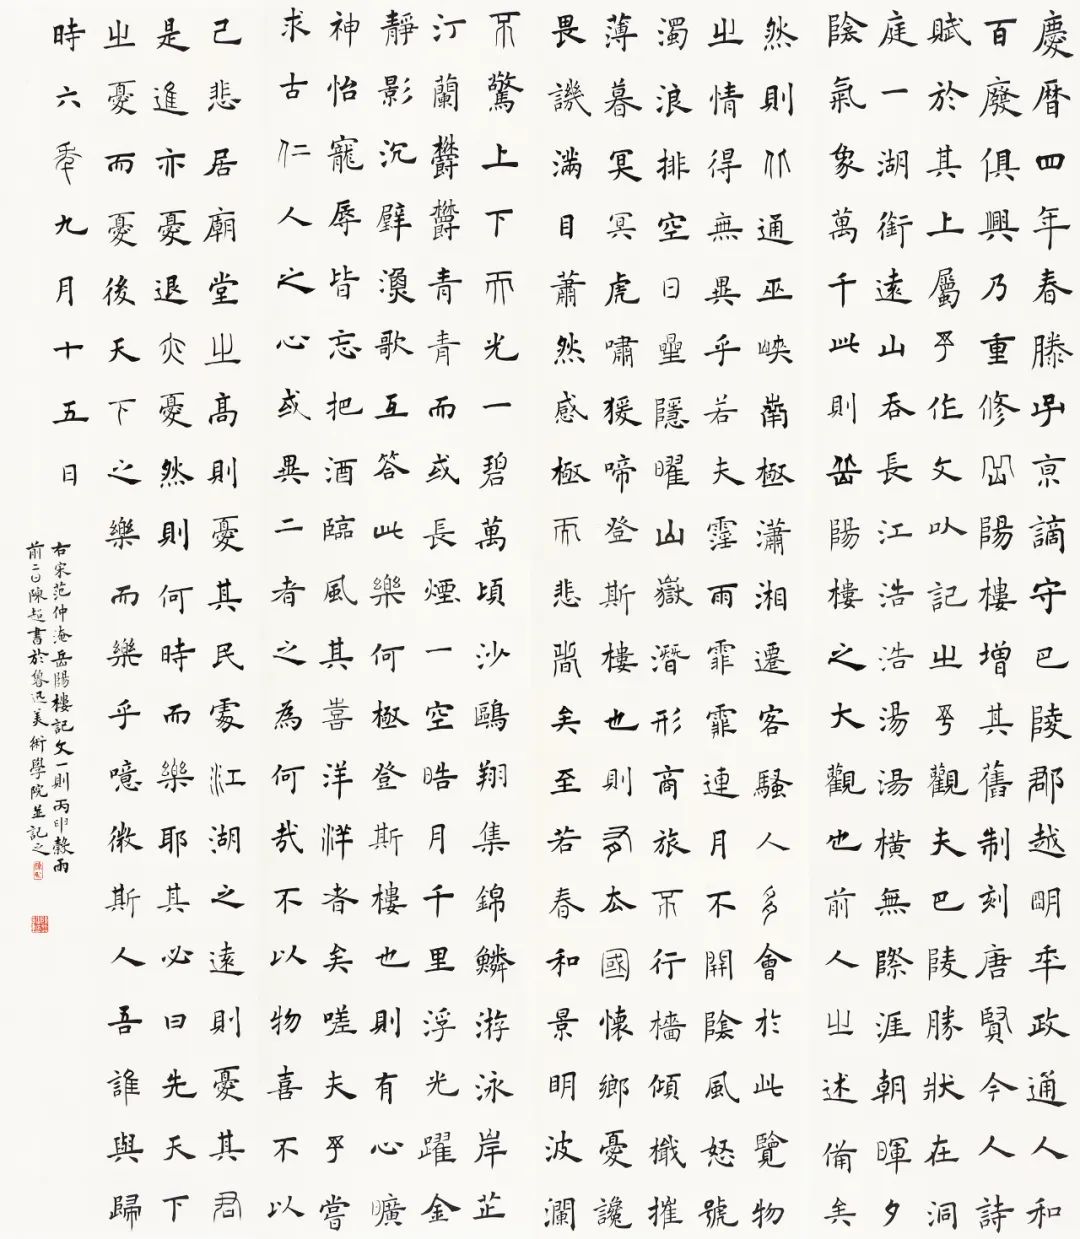 慶曆四年春滕子京謫守巴陵郡越明年政通人和
百廢俱興乃重修岳陽樓增其舊制刻唐賢今人詩
賦於其上屬予作文以記之予觀夫巴陵勝狀在洞
庭一湖銜遠山吞長江浩浩湯湯橫無際涯朝暉夕
陰氣象萬千此則岳陽樓之大觀也前人之述備矣
然則北通巫峽南極瀟湘遷客騷人多會於此覽物
之情得無異乎若夫霪雨霏霏連月不開陰風怒號
濁浪排空日星隱曜山嶽潛形商旅不行檣傾檝摧
薄暮冥冥虎嘯猨啼登斯樓也則有去國懷鄉憂讒
畏譏滿目蕭然感極而悲者矣至若春和景明波瀾
不驚上下天光一碧萬頃沙鷗翔集錦鱗游泳岸芷
汀蘭鬱鬱青青而或長煙一空晧月千里浮光躍金
靜影沉璧漁歌互答此樂何極登斯樓也則有心曠
神怡寵辱皆忘把酒臨風其喜洋洋者矣嗟夫予嘗
求古仁人之心或異二者之為何哉不以物喜不以
己悲居廟堂之高則憂其民處江湖之遠則憂其君
是進亦憂退亦憂然則何時而樂耶其必曰先天下
之憂而憂後天下之樂而樂乎噫微斯人吾誰與歸
時六年九月十五日
右宋范仲淹岳陽樓記文一則丙申穀雨
前二日陳超書於魯迅美術學院並記之